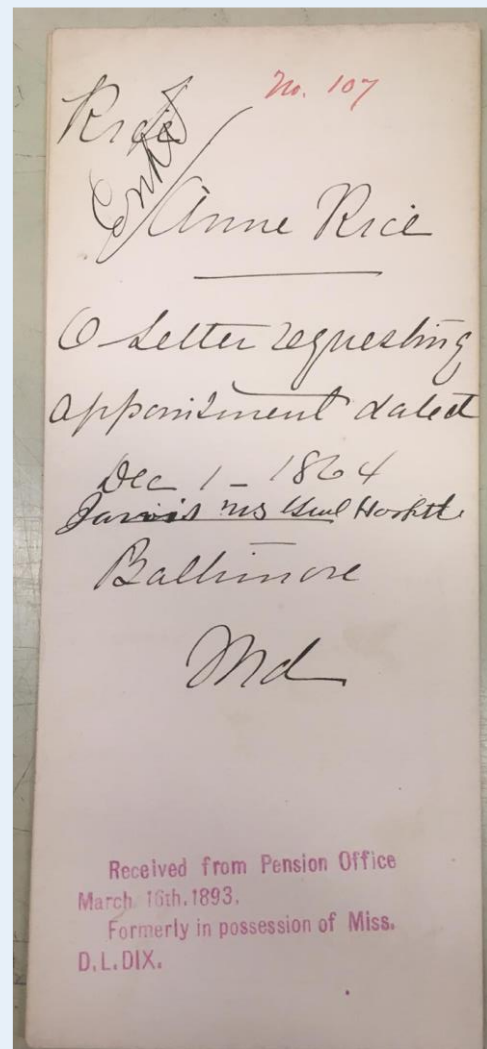 No. 107
Rice
Anne Rice
Letter requesting
appointment dated
Dec 1 - 1864
Jarvis US Genl Hospitl
Baltimore
Md
Received from Pension Office
March 16th. 1893.
Formerly in possession of Miss.
D. L. DIX.